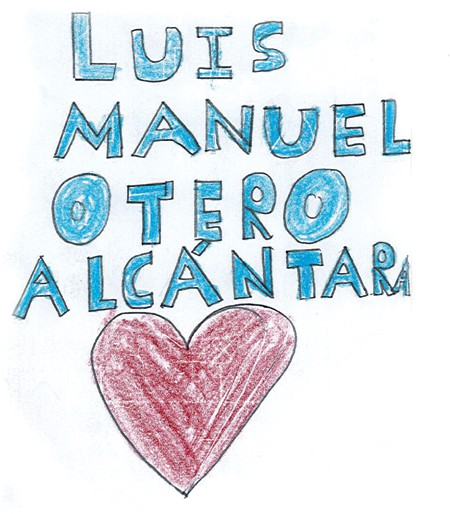 LUIS
MANUEL
OTERO
ALCÁNTARA